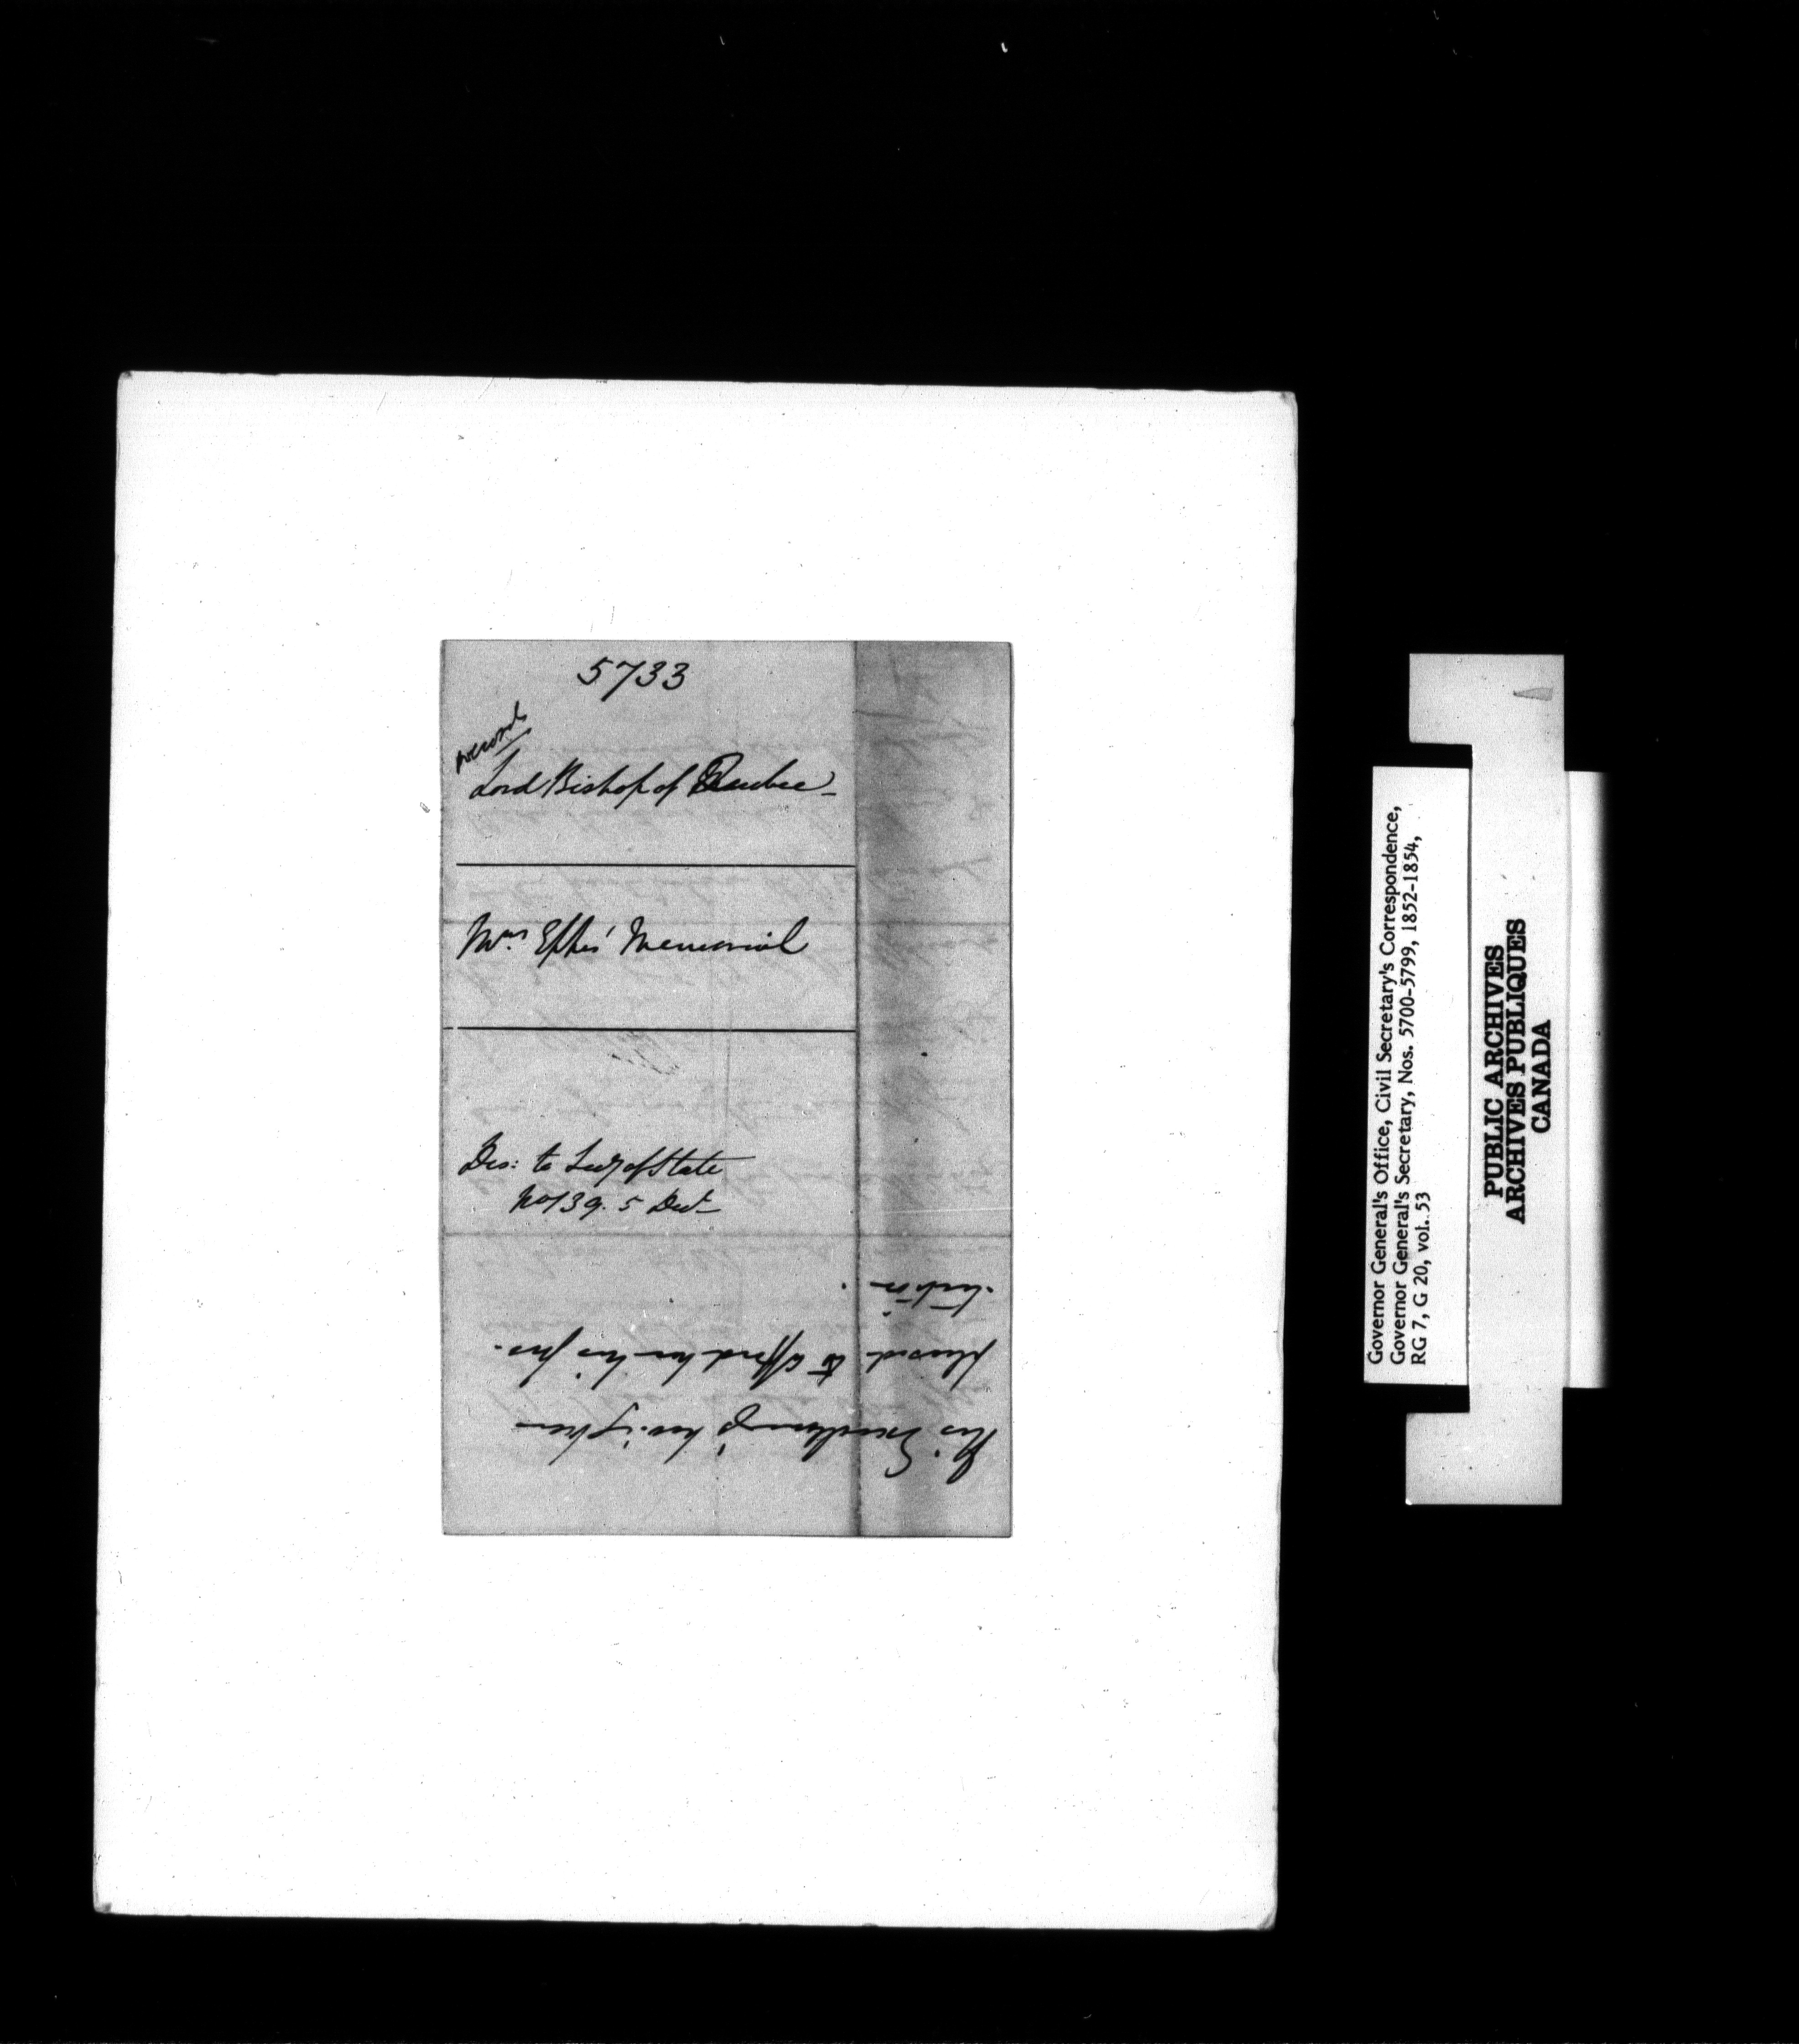 5733
Lord Bishop of Quebec
Mrs. Memorial
Des: to Secy of State
No 139. 5 Dect
His Excellency's having been
pleased to afford her his pro-
-tection.
Governor General's Office, Civil Secretary's Correspondence,
Governor General's Secretary, Nos. 5700-5799, 1852-1854,
RG 7, G 20, vol. 53
PUBLIC ARCHIVES
ARCHIVES PUBLIQUES
CANADA